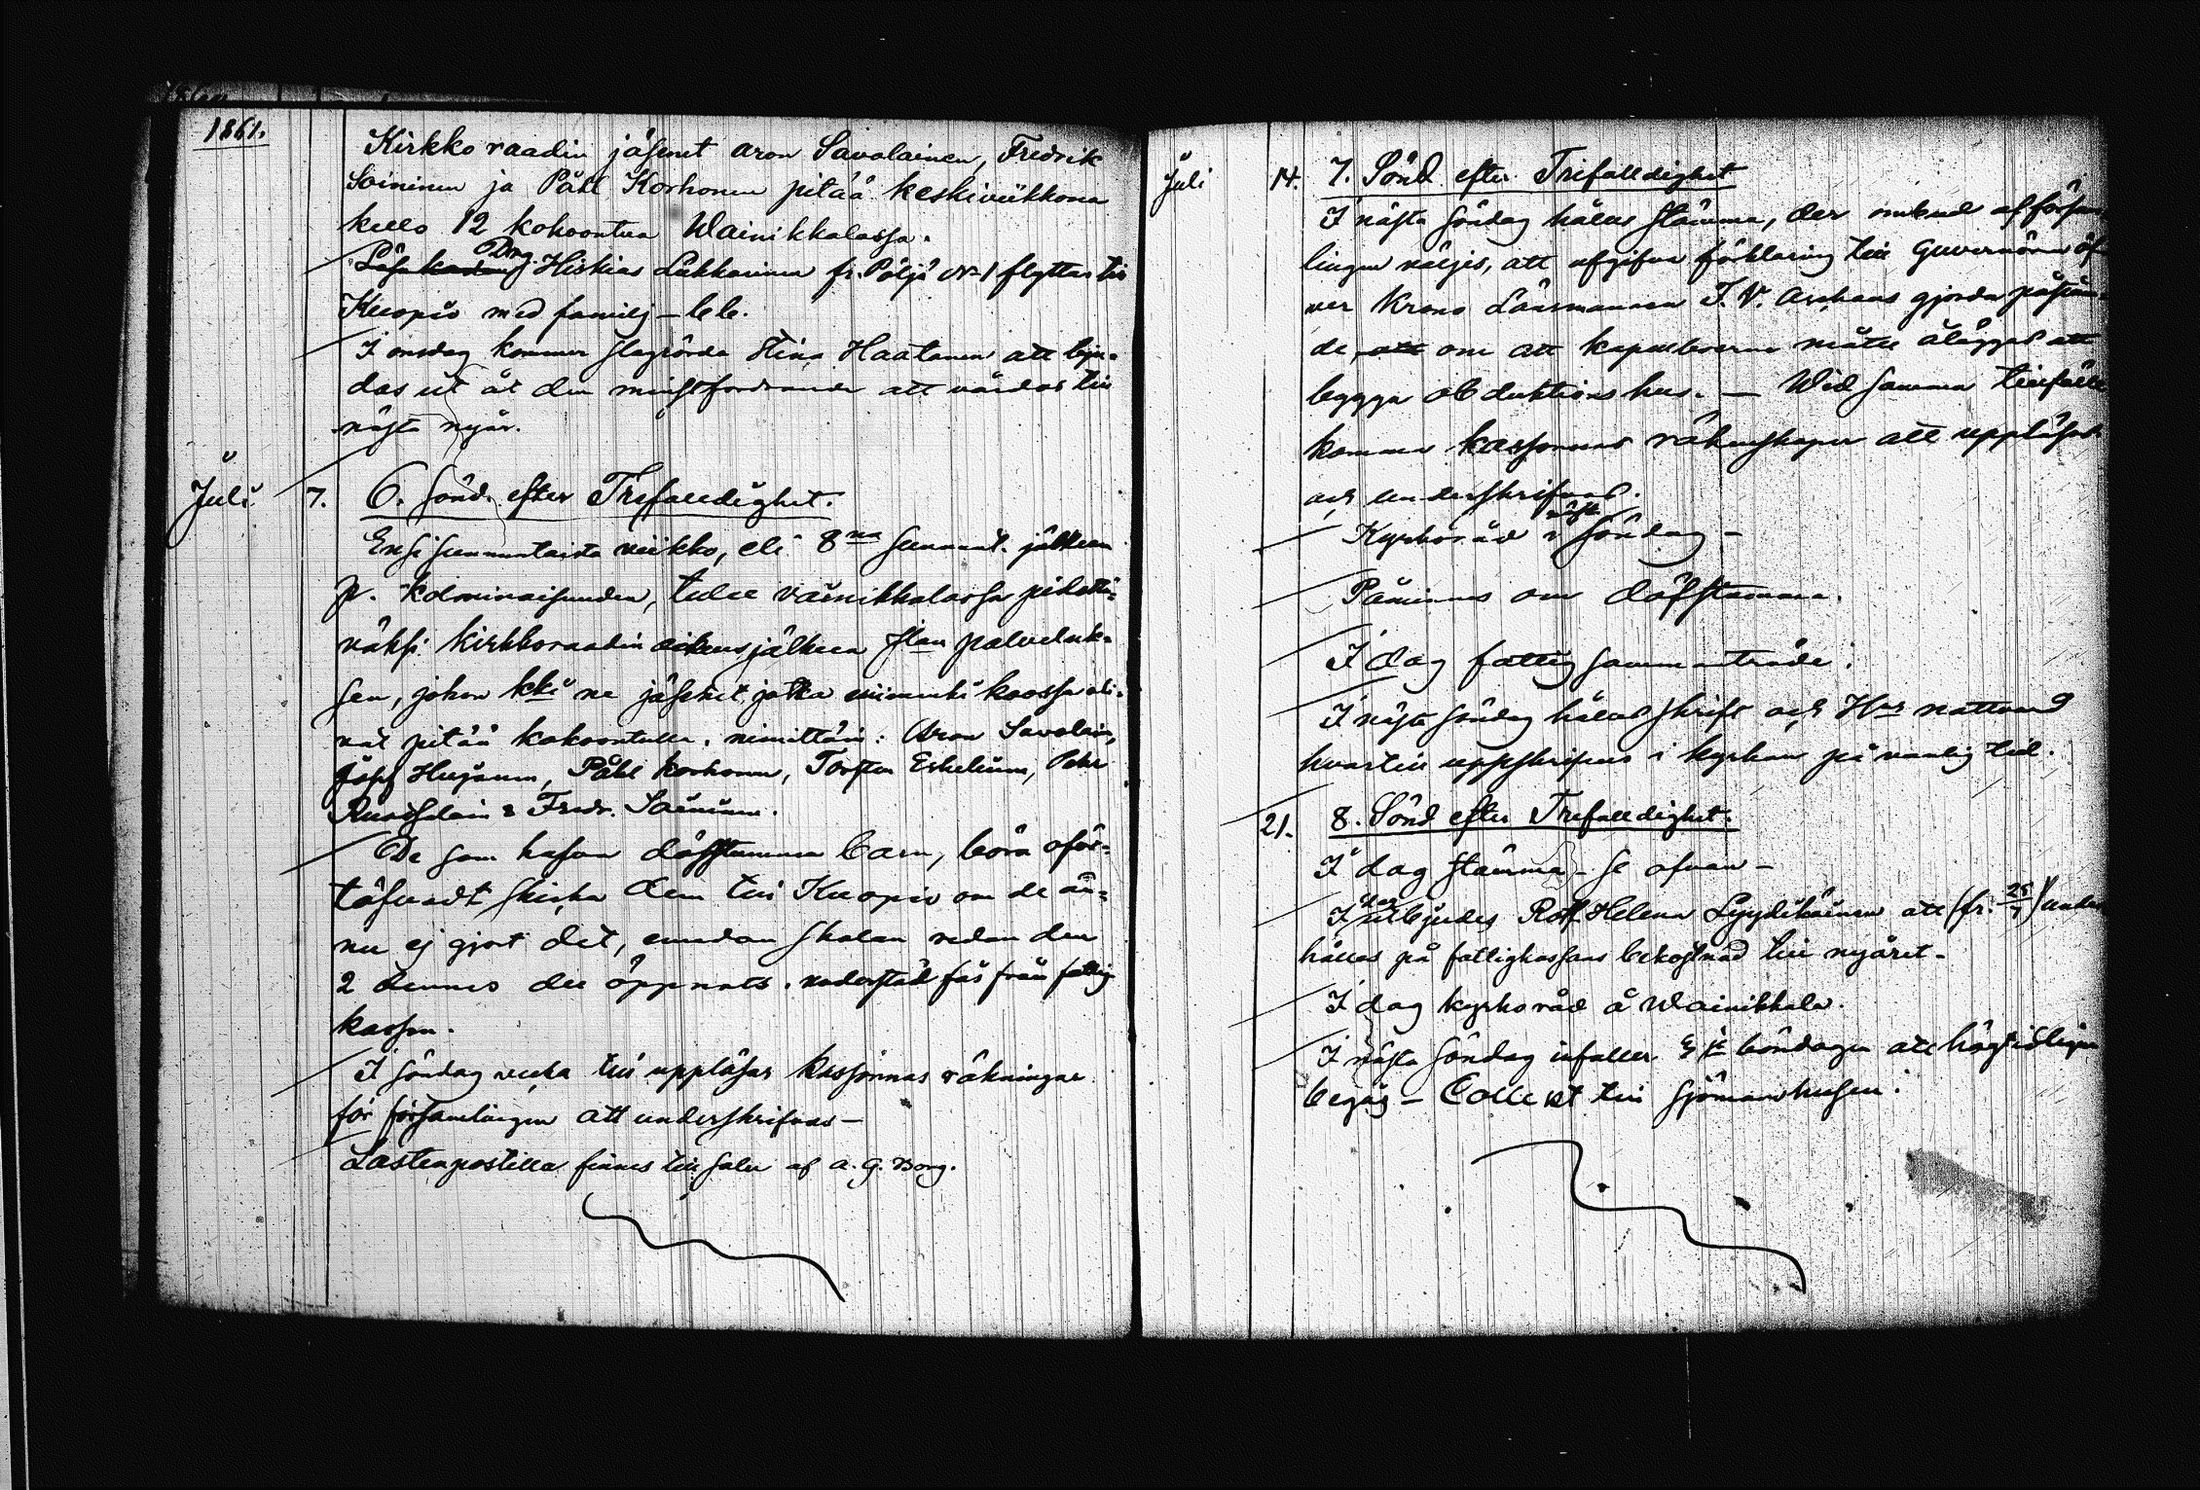 1861.
Kirkko raadin jäsenet Aron Savolainen, Fredrik
Soininen ja Påhl Korhonen pitää keskiviikkona
kello 12 kokoontua Wainikkalassa.
Drng. Hiskias Lukkarinen fr. Pöljä No 1 flyttar till
Kuopio med familj – bb.
I onsdag kommer slagrörda Stina Haatanen att bju-
das ut åt den minstfordrande att vårdas till
nästa nyår.
Juli 7. 6. Sönd. efter Trefalldighet.
Ensi sunnuntaista viikko, eli 8na sunnunt. jälkeen
p. kolminaisuuden, tulee Vainikkalassa pidettä-
väksi kirkkoraadin jälkeen Jlan palveluk-
sen, johon kki ne jäsenet, jotka
vat pitää kokoontulla, nimittäin: Aron Savolain,
Påhl Korhonen, Torsten Eskelinen, Pehr
Ruotsalain & Fredr. Soininen.
De som hafva döfstumma barn, böra oför-
töfvadt skicka dem till Kuopio om de än-
nu ej gjort det, emedan skolan redan den
2 dennes der öppnats. understöd fås från fattig
kassan.
I söndag vecka till uppläsas kassornas räkningar
för församlingen att underskrifvas –
Lastenpostilla finnes till salu af A. G. Borg.
Juli 14. 7. Sönd efter Trefalldighet
I nästa söndag hålles stämma, der ombud af försam
lingen väljes, att afgifva förklaring till Guvernören öf
ver Krono Länsmannen J. V. gjorda påståen-
de, att om att kapellboerne måtte åläggas att
bygga obduktions hus. – Wid samma tillfälle
komma kassornas räkenskaper att uppläsas
och underskrifvas.
Kyrkoråd i nästa Söndag –
Påminnes om döfstumma.
I dag fattig sammanträde.
I nästa söndag hålles skrift och Hrs nattvard
hvartill uppskrifves i kyrkan på vanlig tid.
21. 8. Sönd efter Trefalldighet.
I dag stämma – se ofvan –
I dag utbjudes Rotf. Helena Lyydikäinen att (fr. 25/7) under
hållas på fattigkassans bekostnad till nyåret –
I dag kyrkoråd å Wainikkala.
I nästa söndag infaller 3je böndagen att högtidligen
begås – Collect till sjömanshusen.